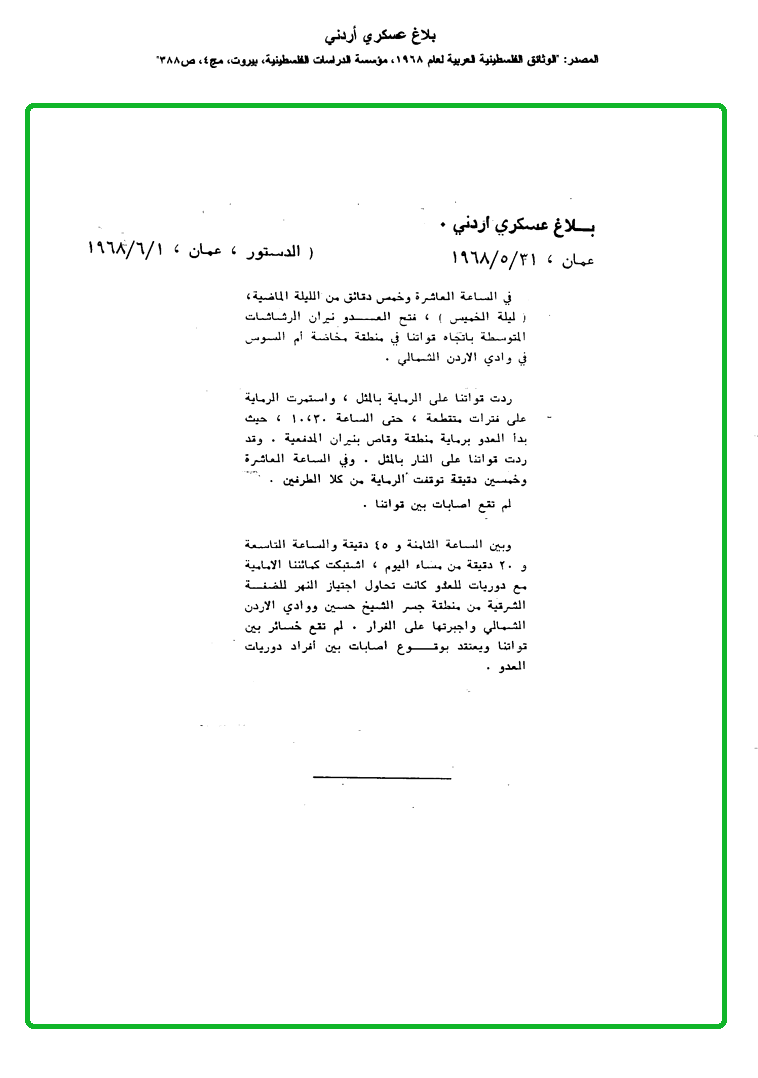 بلاغ عسكري أردني
المصدر: "الوثائق الفلسطينية العربية لعام ١٩٦٨، مؤسسة الدراسات الفلسطينية، بيروت، مج٤، ص٣٨٨"
بـــلاغ عسكري أردني .
عمان ، ٣١/٥/١٩٦٨
( الدستور ، عمان ، ١/٦/١٩٦٨
في الساعة العاشرة وخمس دقائق من الليلة الماضية،
( ليلة الخميس ) ، فتح العـــدو نيران الرشاشات
المتوسطة باتجاه قواتنا في منطقة مخاضة أم السوس
في وادي الاردن الشمالي .
ردت قواتنا على الرماية بالمثل ، واستمرت الرماية
على فترات متقطعة ، حتى الساعة ١٠،٣٠ ، حيث
بدأ العدو برماية منطقة وقاص بنيران المدفعية . وقد
ردت قواتنا على النار بالمثل . وفي الساعة العاشرة
وخمسين دقيقة توقفت الرماية من كلا الطرفين .
لم تقع اصابات بين قواتنا .
وبين الساعة الثامنة و ٤٥ دقيقة والساعة التاسعة
و ٢٠ دقيقة من مساء اليوم ، اشتبكت كمائننا الامامية
مع دوريات للعدو كانت تحاول اجتياز النهر للضفـــة
الشرقية من منطقة جسر الشيخ حسين ووادي الاردن
الشمالي واجبرتها على الفرار . لم تقع خسائر بين
قواتنا ويعتقد بوقـــوع اصابات بين أفراد دوريات
العدو .